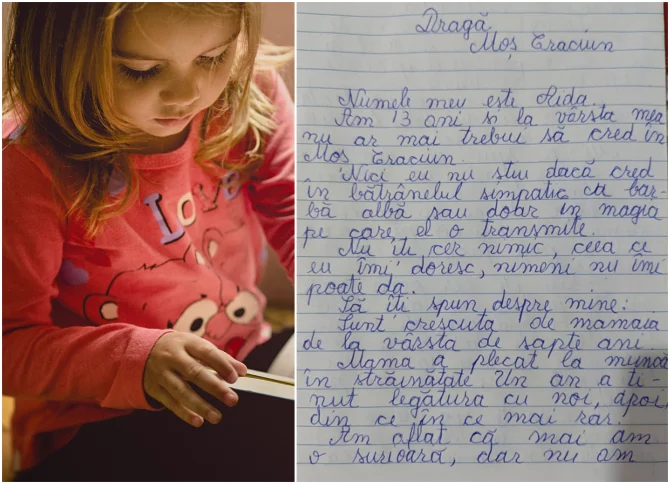 LOVE
Dragă
Moș Crăciun
Numele meu este Aida.
Am 13 ani și la vârsta mea
nu ar mai trebui să cred în
Moș Crăciun.
Nici eu nu știu dacă cred
în bătrânelul simpatic cu bar-
bă albă sau doar în magia
pe care el o transmite.
Nu îți cer nimic, ceea ce
eu îmi doresc, nimeni nu îmi
poate da.
Să îți spun despre mine:
Sunt crescută de mamaia
de la vârsta de șapte ani.
Mama a plecat la muncă
în străinătate. Un an a ți-
nut legătura cu noi, apoi
din ce în ce mai rar.
Am aflat că mai am
o surioară, dar nu am